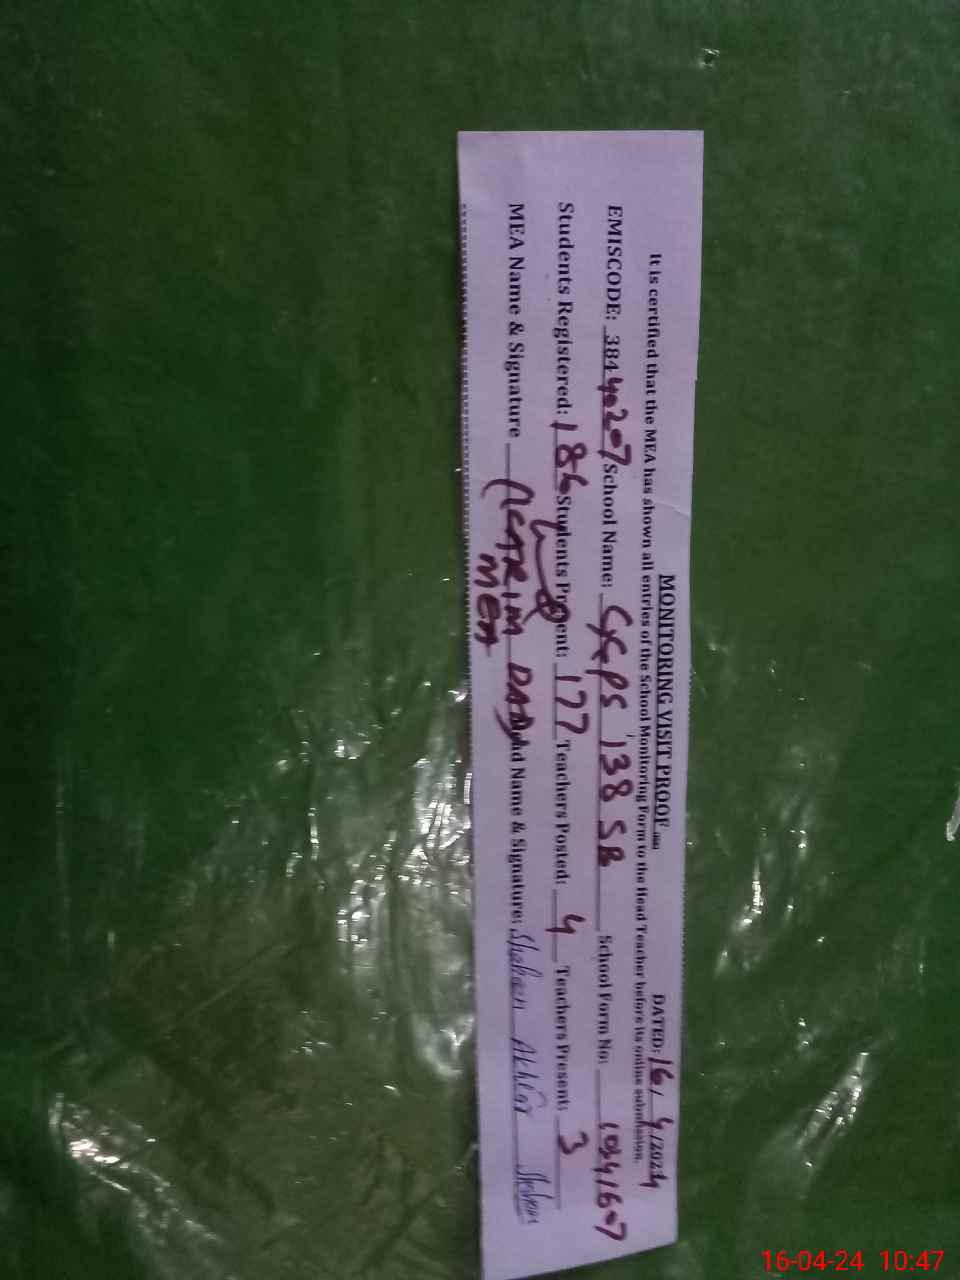 MONITORING VISIT PROOF
DATED: 16/4/2024
It is certified that the MEA has shown all entries of the School Monitoring Form to the Head Teacher before its online submission.
EMISCODE: 38440207 School Name: GGPS 138 SB School Form No: 10341607
Students Registered: 186 Students Present: 177 Teachers Posted: 4 Teachers Present: 3
MEA Name & Signature KARIM DAD Name & Signature: Shaheen Akhtar
MEA
16-04-24 10:47